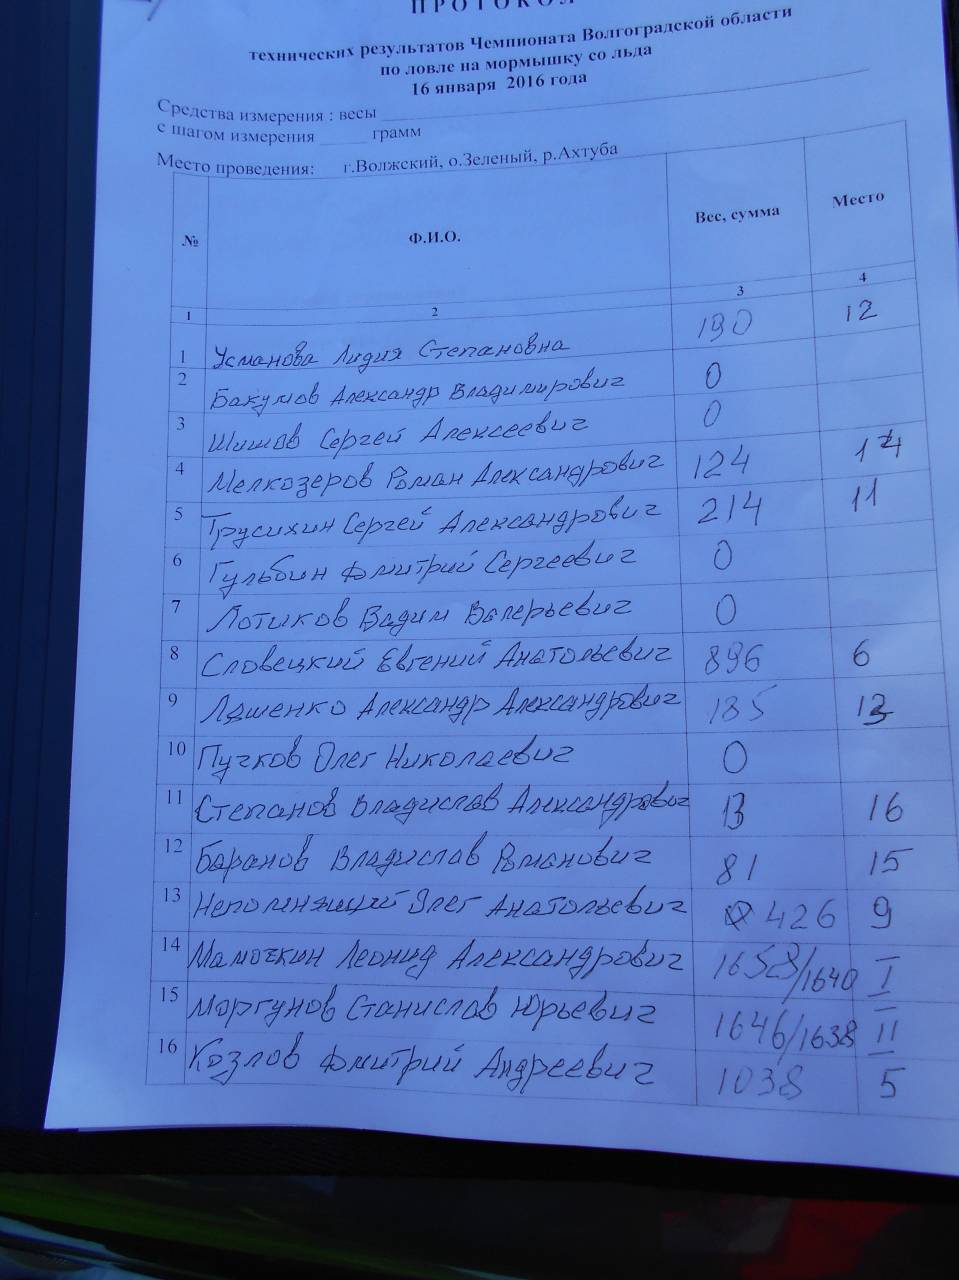 ПРОТОКОЛ
технических результатов Чемпионата Волгоградской области
по ловле на мормышку со льда
16 января 2016 года
Средства измерения : весы
с шагом измерения ______ грамм
Место проведения: г.Волжский, о.Зеленый, р.Ахтуба
№ Ф.И.О. Вес, сумма Место
1 2 3 4
1 Усманова Лидия Степановна 190 12
2 Бакумов Александр Владимирович 0
3 Шишов Сергей Алексеевич 0
4 Мелкозеров Роман Александрович 124 14
5 Трусихин Сергей Александрович 214 11
6 Гульбин Дмитрий Сергеевич 0
7 Лотиков Вадим Валерьевич 0
8 Словецкий Евгений Анатольевич 896 6
9 Ляшенко Александр Александрович 185 13
10 Пучков Олег Николаевич 0
11 Степанов Владислав Александрович 13 16
12 Баранов Владислав Романович 81 15
13 Непомнящий Олег Анатольевич 426 9
14 Мамочкин Леонид Александрович 1653/1640 I
15 Моргунов Станислав Юрьевич 1646/1638 II
16 Козлов Дмитрий Андреевич 1038 5